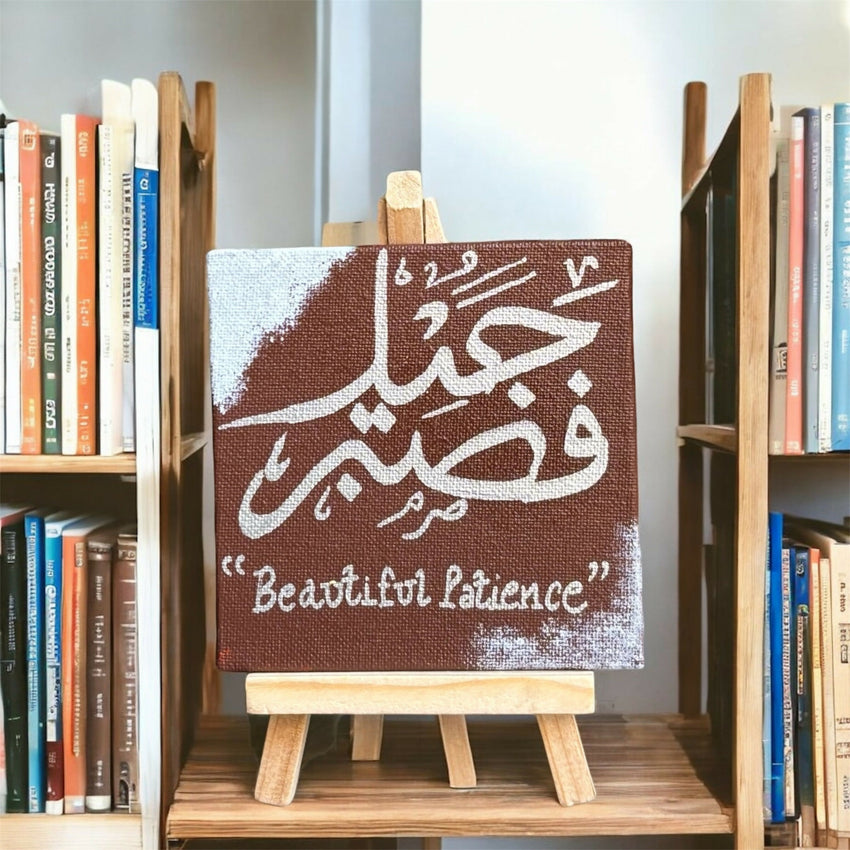 فصبر جميل
“Beautiful Patience”